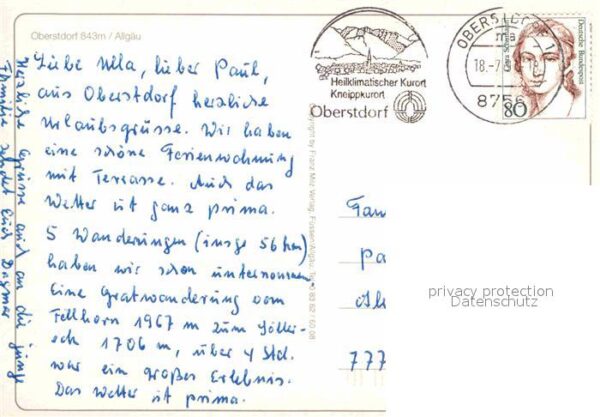 Oberstdorf 843m / Allgäu
Liebe Ulla, lieber Paul,
aus Oberstdorf herzliche
Urlaubsgrüsse. Wir haben
eine schöne Ferienwohnung
mit Terasse. Auch das
Wetter ist ganz prima.
5 Wanderungen (insge 56 km)
haben wir schon unternommen
Eine Gratwanderung vom
Fellhorn 1967 m zum Söller-
eck 1706 m, über 4 Std.
war ein großes Erlebnis.
Das Wetter ist prima.
Herzliche Grüsse auch an die junge
Familie sendet Euch Dagmar
Copyright by Franz Milz Verlag, Füssen/Allgäu, Tel. 0 83 62 / 60 08
Heilklimatischer Kurort
Kneippkurort
Oberstdorf
OBERSTDORF 1
ma
18.-7.
8756
Deutsche Bundespost
80
Fam
Pa
777
privacy protection
Datenschutz